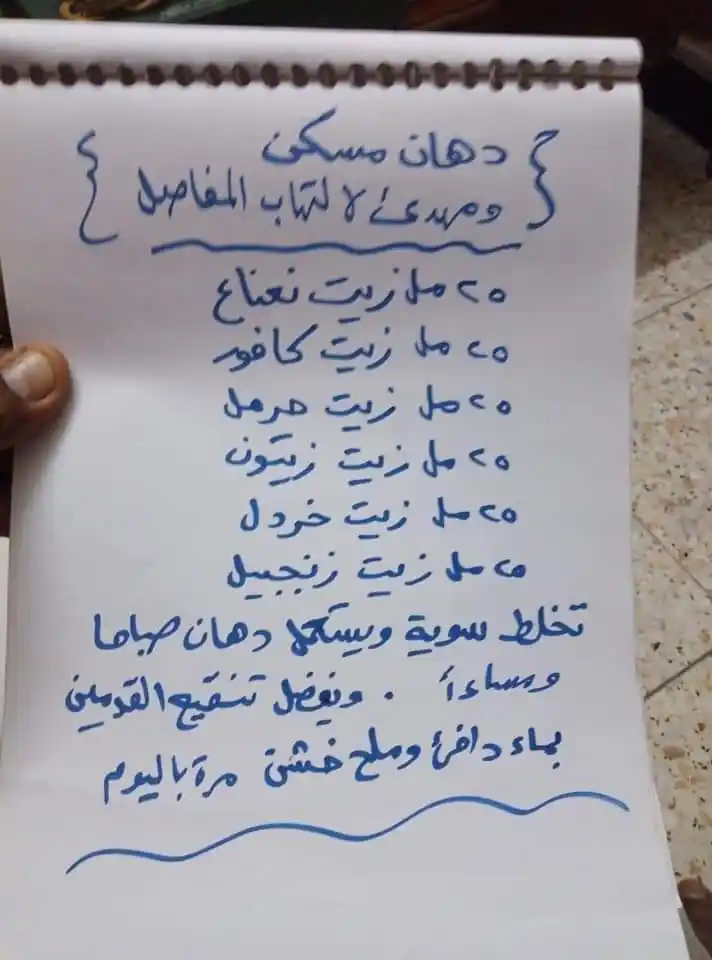 { دهان مسكن
ومهدئ لالتهاب المفاصل }
٢٥ مل زيت نعناع
٢٥ مل زيت كافور
٢٥ مل زيت حرمل
٢٥ مل زيت زيتون
٢٥ مل زيت خردل
٢٥ مل زيت زنجبيل
تخلط سوية ويستعمل دهان صباحا
ومساءاً . ويفضل تنقيع القدمين
بماء دافئ وملح خشن مرة باليوم